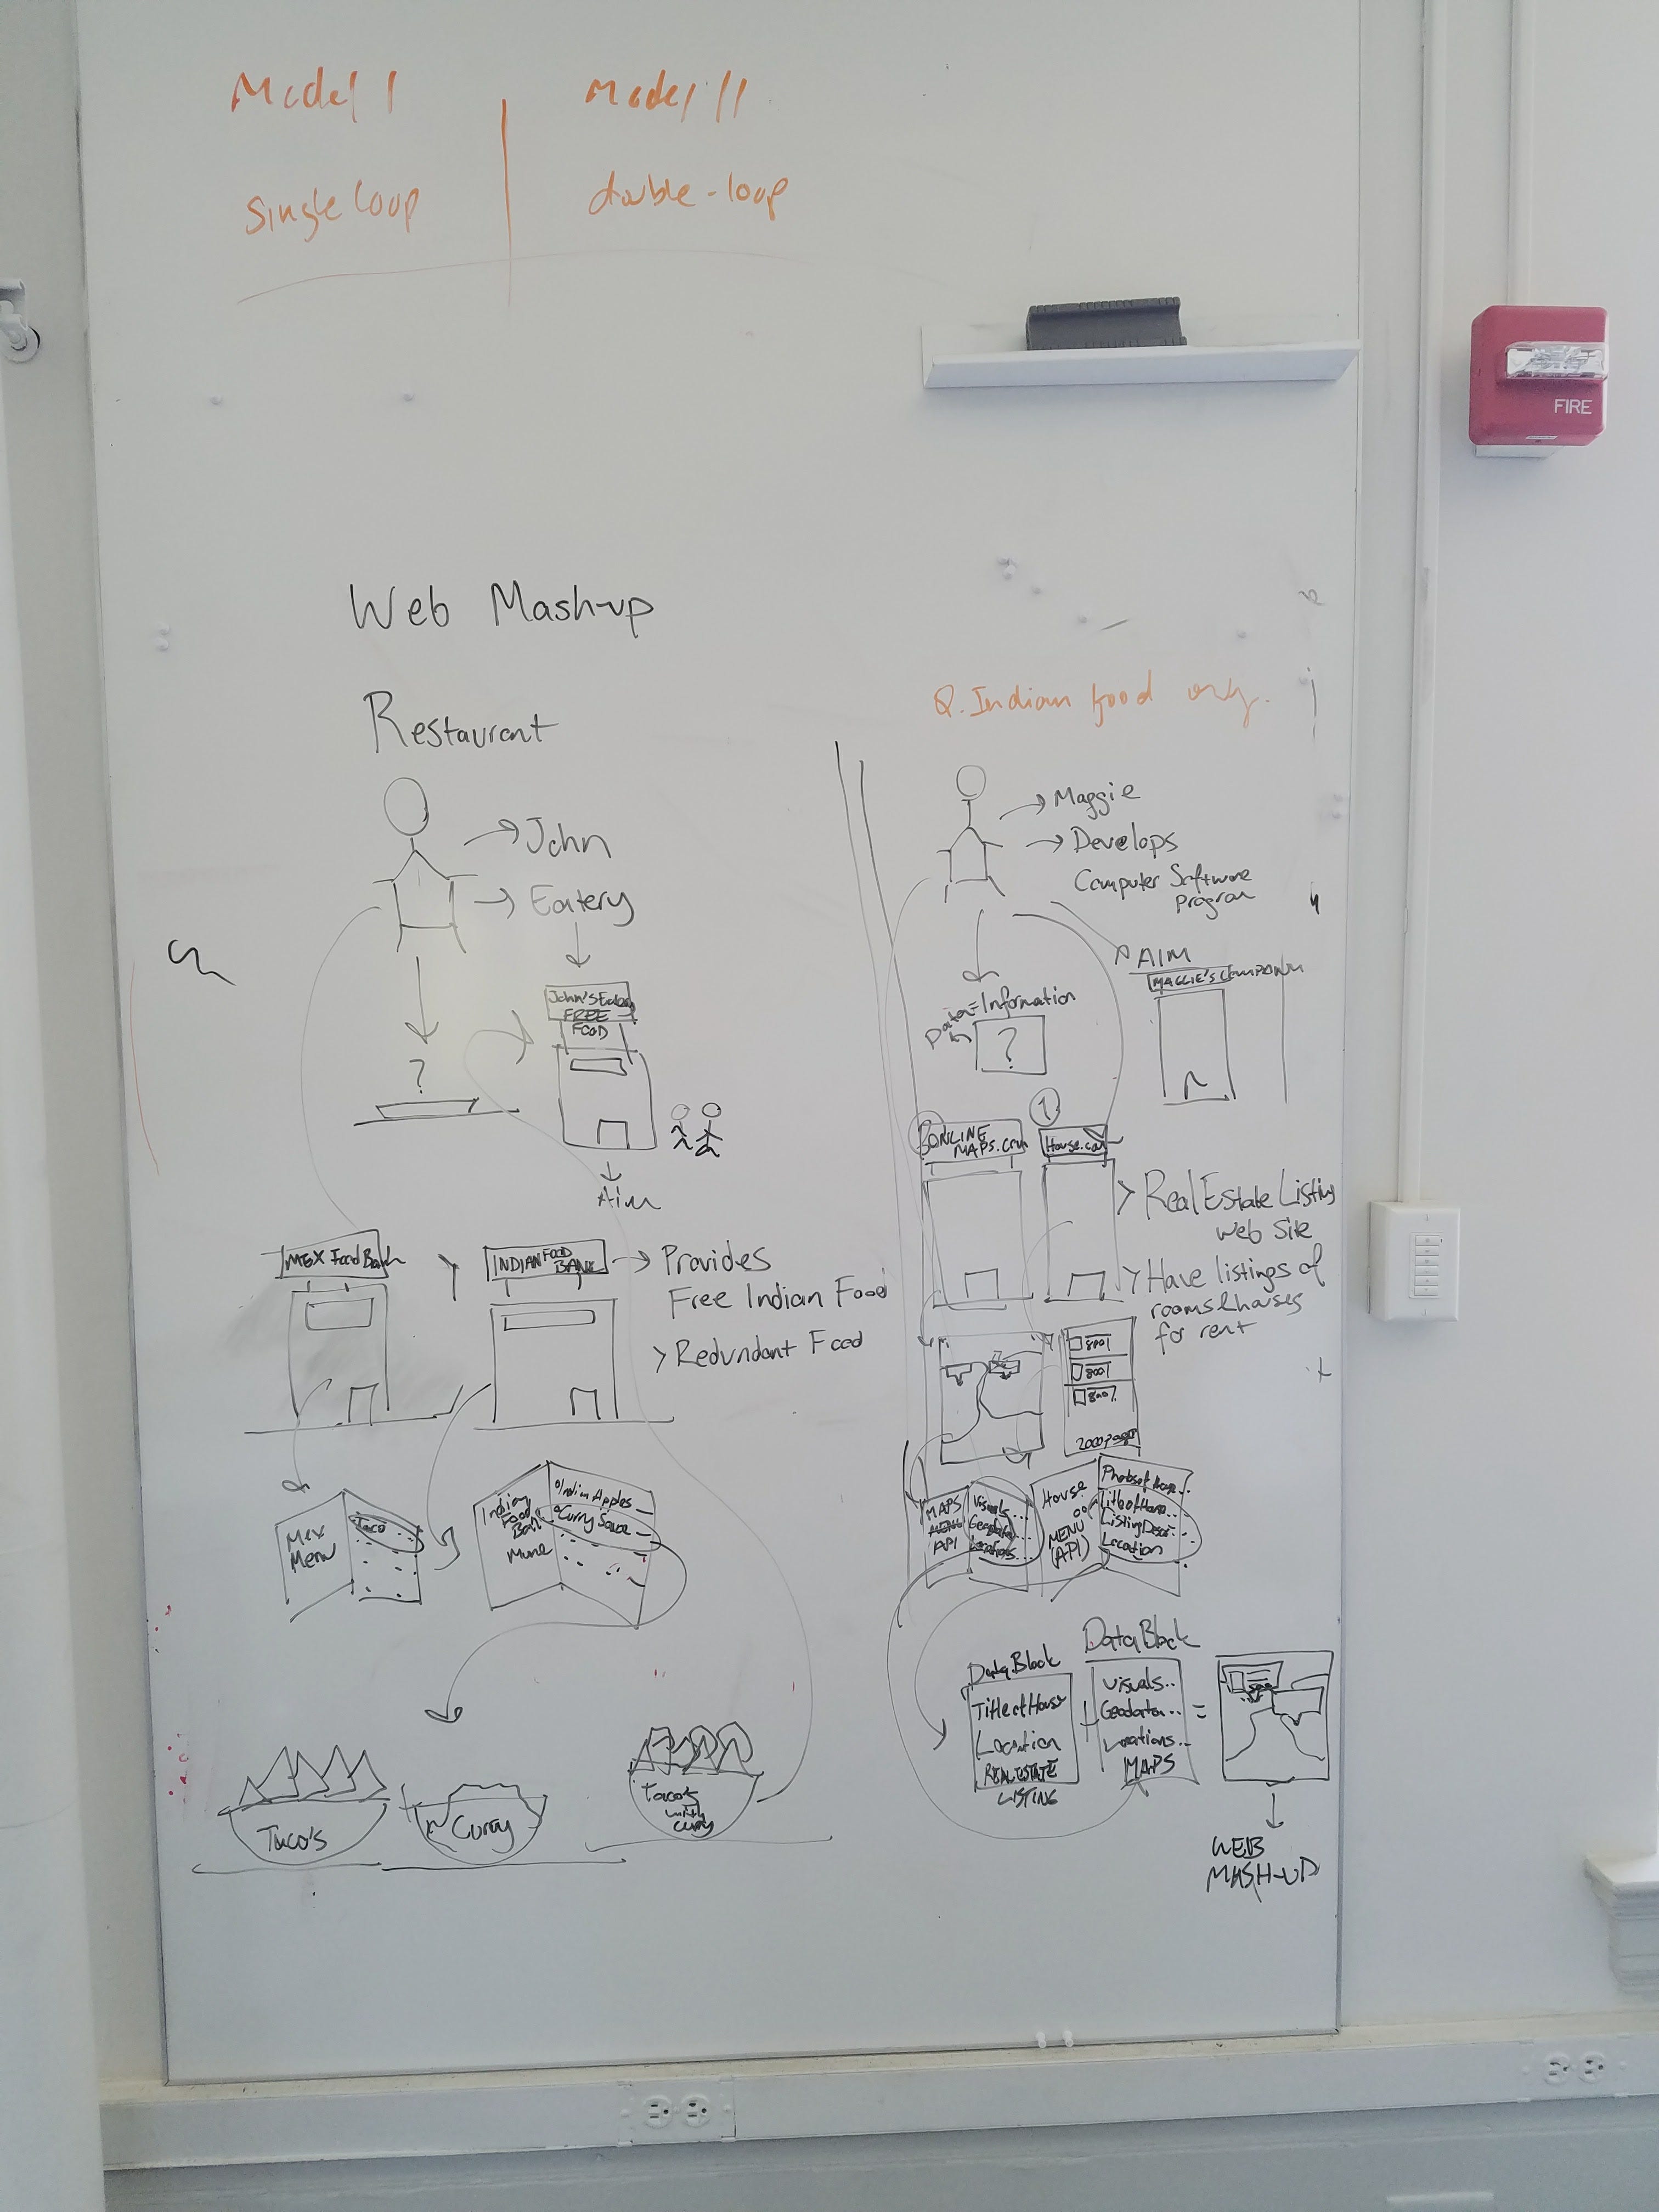 Model I
Model II
Single loop
double-loop
FIRE
Web Mash-up
Restaurant
John
Eatery
John's Eatery
FREE
FOOD
?
Aim
MEX Food Bank
INDIAN FOOD
BANK
Provides
Free Indian Food
> Redundant Food
Mex
Menu
Taco
Indian
Food
Bank
Mune
Indian Apples
Curry Sauce
Taco's
+
Curry
Taco's
with
curry
Q. Indian food only.
Maggie
Develops
Computer Software
program
AIM
MAGGIE'S COMPANY
Data=Information
?
1
ONLINE
MAPS.com
House.com
> Real Estate Listing
web site
> Have listings of
rooms & houses
for rent
2000 pages
MAPS
MENU
API
Visuals...
Geodata...
Locations...
House
MENU
(API)
Photos of House...
Title of House...
Listing Descri...
Location
Data Block
Title of House
Location
REAL ESTATE
LISTING
+
Data Block
Visuals..
Geodata..
Locations..
MAPS
=
WEB
MASH-UP